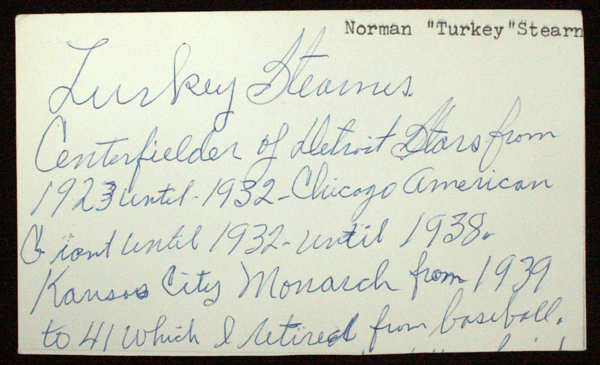 Norman "Turkey"Stearn
Turkey Stearnes.
Centerfielder of Detroit Stars from
1923 until - 1932 - Chicago American
Giant until 1932 - until 1938.
Kansas City Monarch from 1939
to 41 which I retired from baseball.